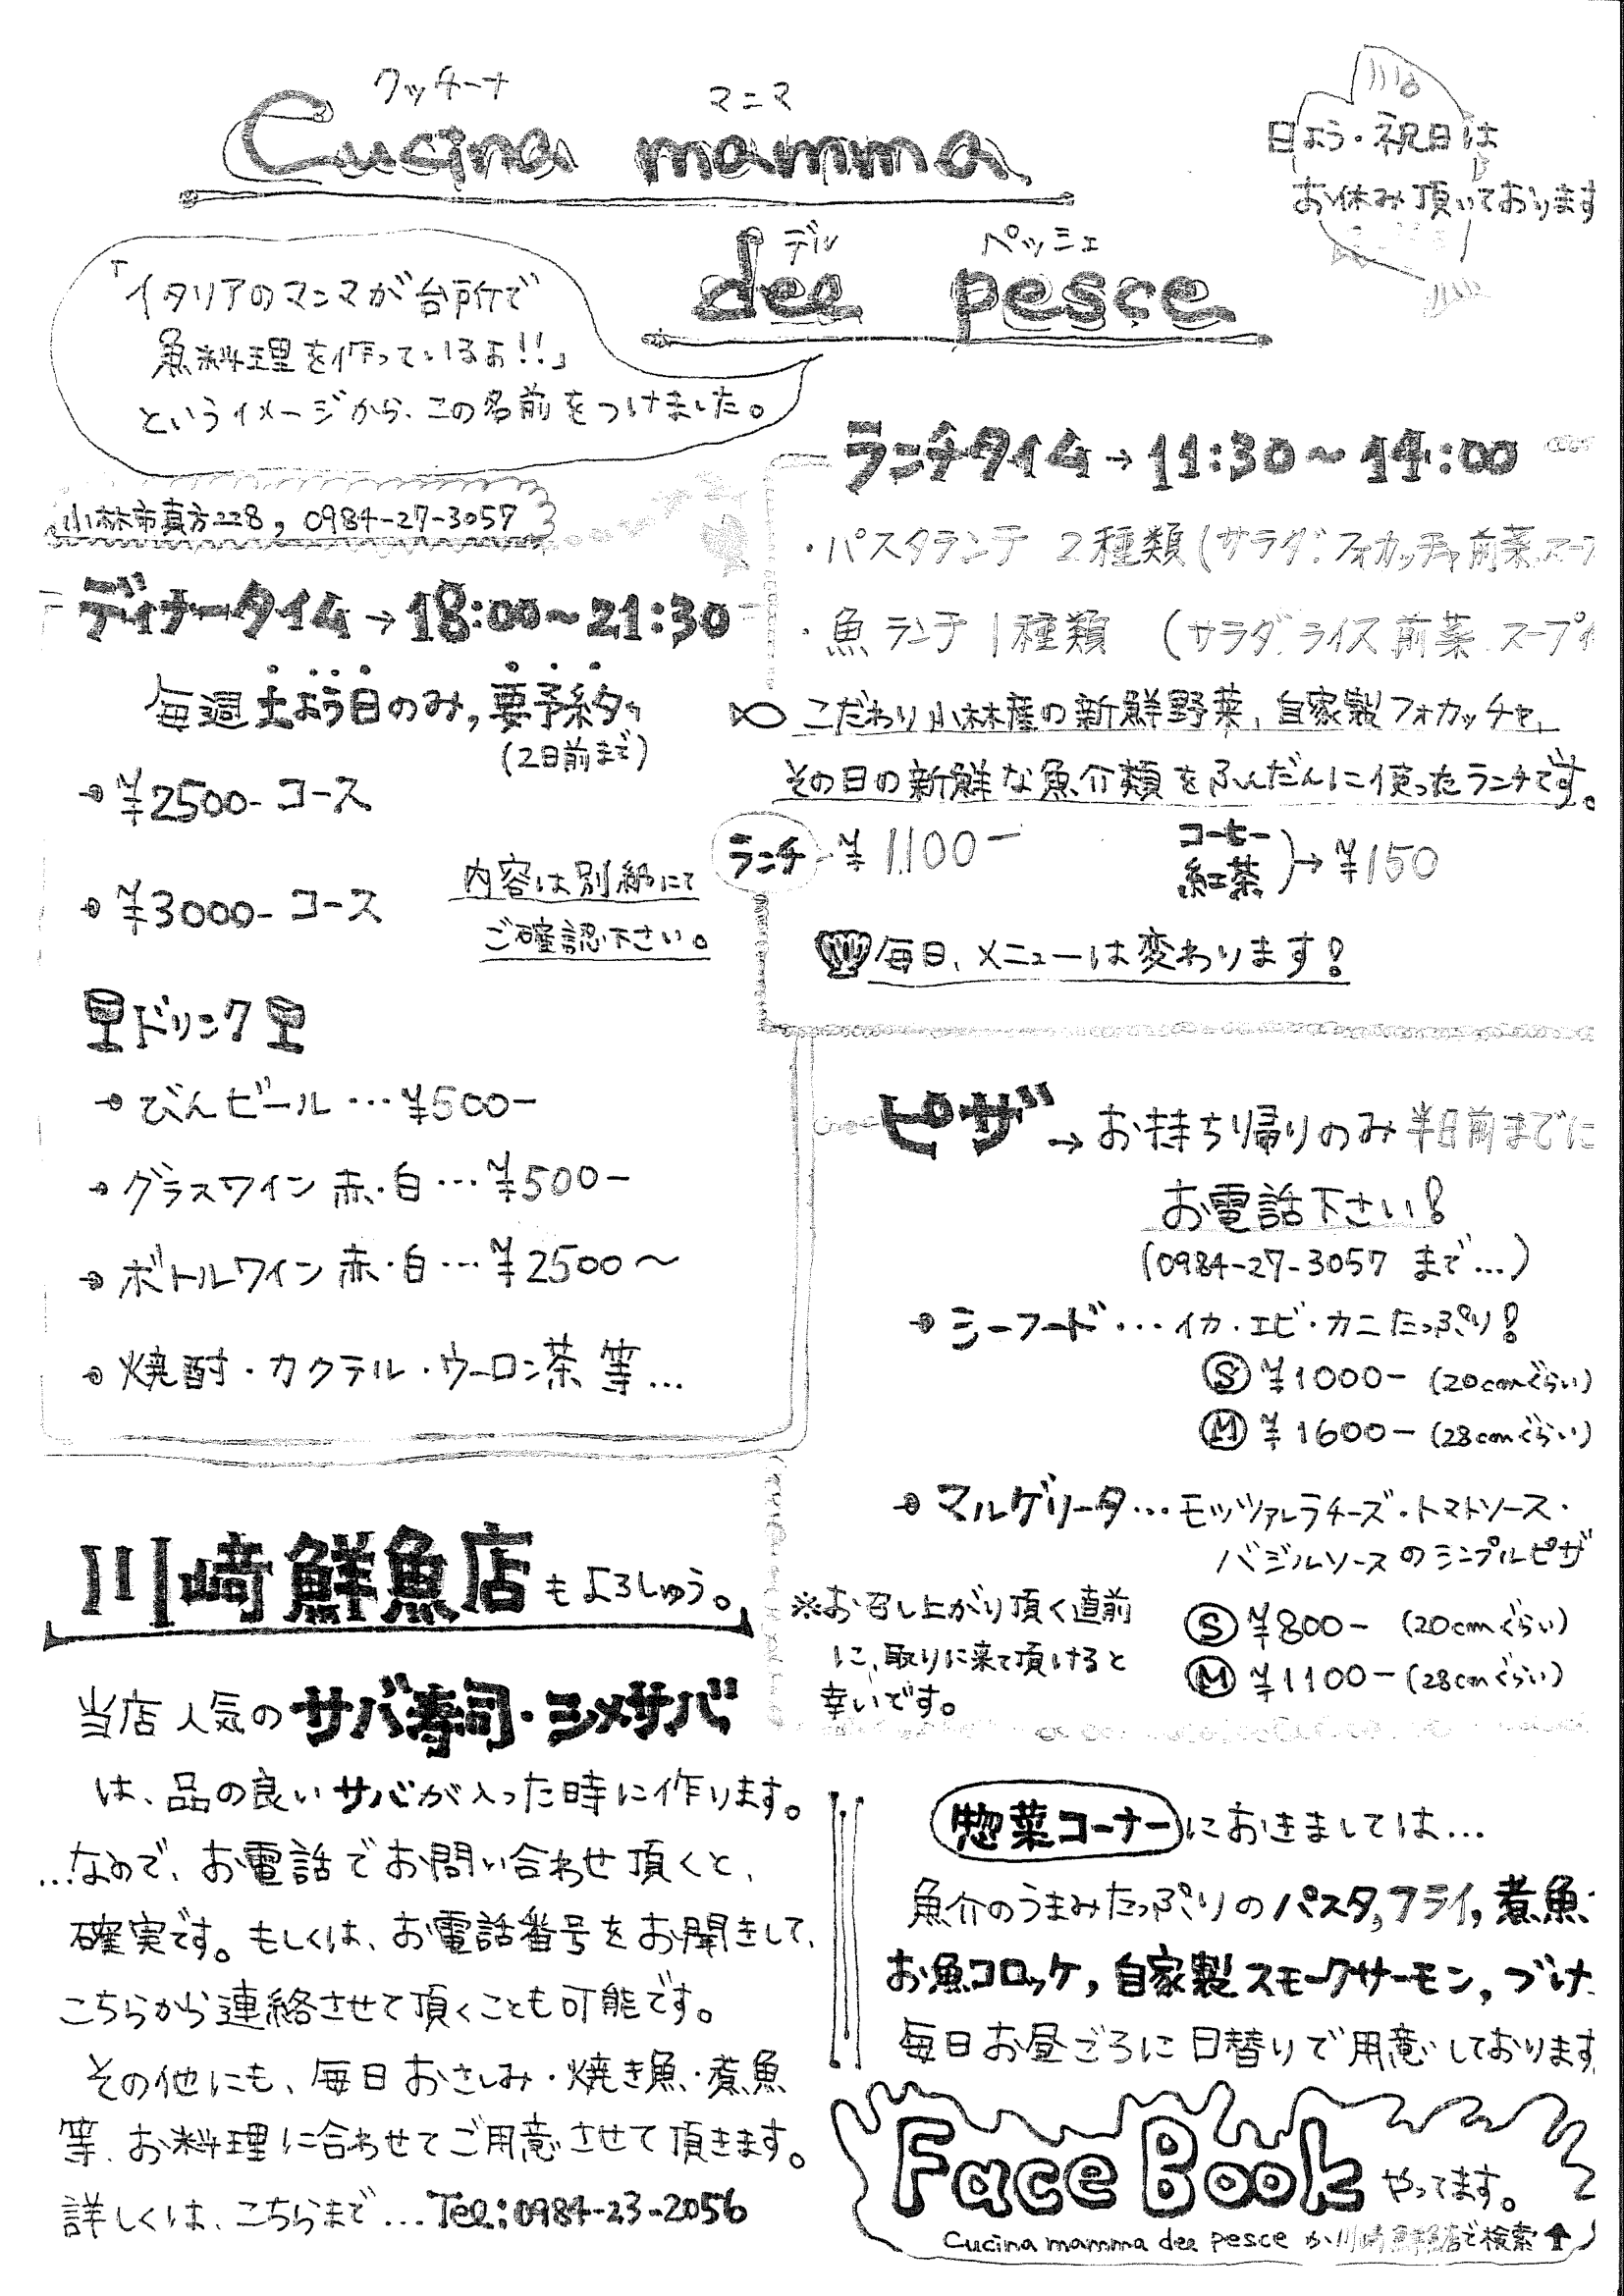 クッチーナ マンマ
Cucina mamma
デル ペッシェ
del pesce
日よう・祝日は
お休み頂いております
「イタリアのマンマが台所で
魚料理を作っているよ!!」
というイメージから、この名前をつけました。
小林市真方228, 0984-27-3057
ランチタイム→11:30〜14:00
・パスタランチ 2種類(サラダ.フォカッチャ.前菜.スープ
・魚ランチ 1種類 (サラダ.ライス.前菜.スープ付
こだわり小林産の新鮮野菜、自家製フォカッチャ、
その日の新鮮な魚介類をふんだんに使ったランチです。
ランチ ¥1,100ー
コーヒー
紅茶 )→¥150
毎日、メニューは変わります!
ディナータイム→18:00〜21:30
毎週土よう日のみ,要予約
(2日前まで)
→¥2500-コース
→¥3000-コース
内容は別紙にて
ご確認下さい。
ドリンク
→びんビール…¥500ー
→グラスワイン 赤・白…¥500ー
→ボトルワイン 赤・白…¥2500〜
→焼酎・カクテル・ウーロン茶 等…
ピザ→お持ち帰りのみ 半日前までに
お電話下さい!
(0984-27-3057 まで…)
→シーフード…イカ・エビ・カニたっぷり!
Ⓢ ¥1000ー (20cmぐらい)
Ⓜ ¥1600ー (28cmぐらい)
→マルゲリータ…モッツァレラチーズ・トマトソース・
バジルソースのシンプルピザ
Ⓢ ¥800ー (20cmぐらい)
Ⓜ ¥1100ー (28cmぐらい)
※お召し上がり頂く直前
に、取りに来て頂けると
幸いです。
川崎鮮魚店もよろしゅう。
当店人気のサバ寿司・シメサバ
は、品の良いサバが入った時に作ります。
…なので、お電話でお問い合わせ頂くと、
確実です。もしくは、お電話番号をお聞きして、
こちらから連絡させて頂くことも可能です。
その他にも、毎日おさしみ・焼き魚・煮魚
等、お料理に合わせてご用意させて頂きます。
詳しくは、こちらまで…Tel:0984-23-2056
惣菜コーナーにおきましては…
魚介のうまみたっぷりのパスタ,フライ,煮魚,
お魚コロッケ,自家製スモークサーモン,づけ
毎日お昼ごろに日替りで用意しております
FaceBook やってます。
Cucina mamma del pesce か川崎鮮魚店で検索↑